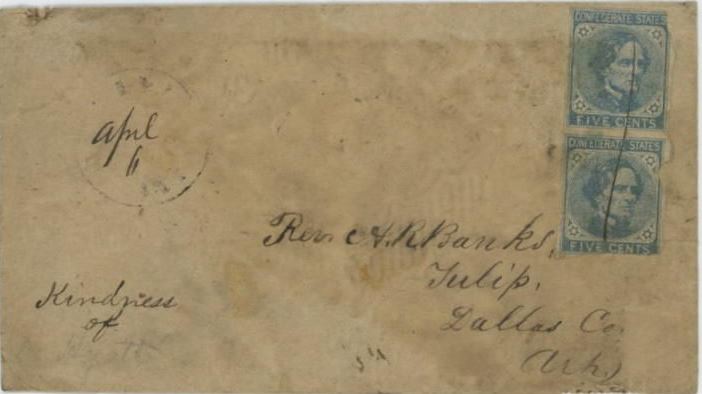 CONFEDERATE STATES
FIVE CENTS
CONFEDERATE STATES
FIVE CENTS
April
6
Rev. A. R. Banks,
Tulip,
Dallas Co.
Ark,
Kindness
of